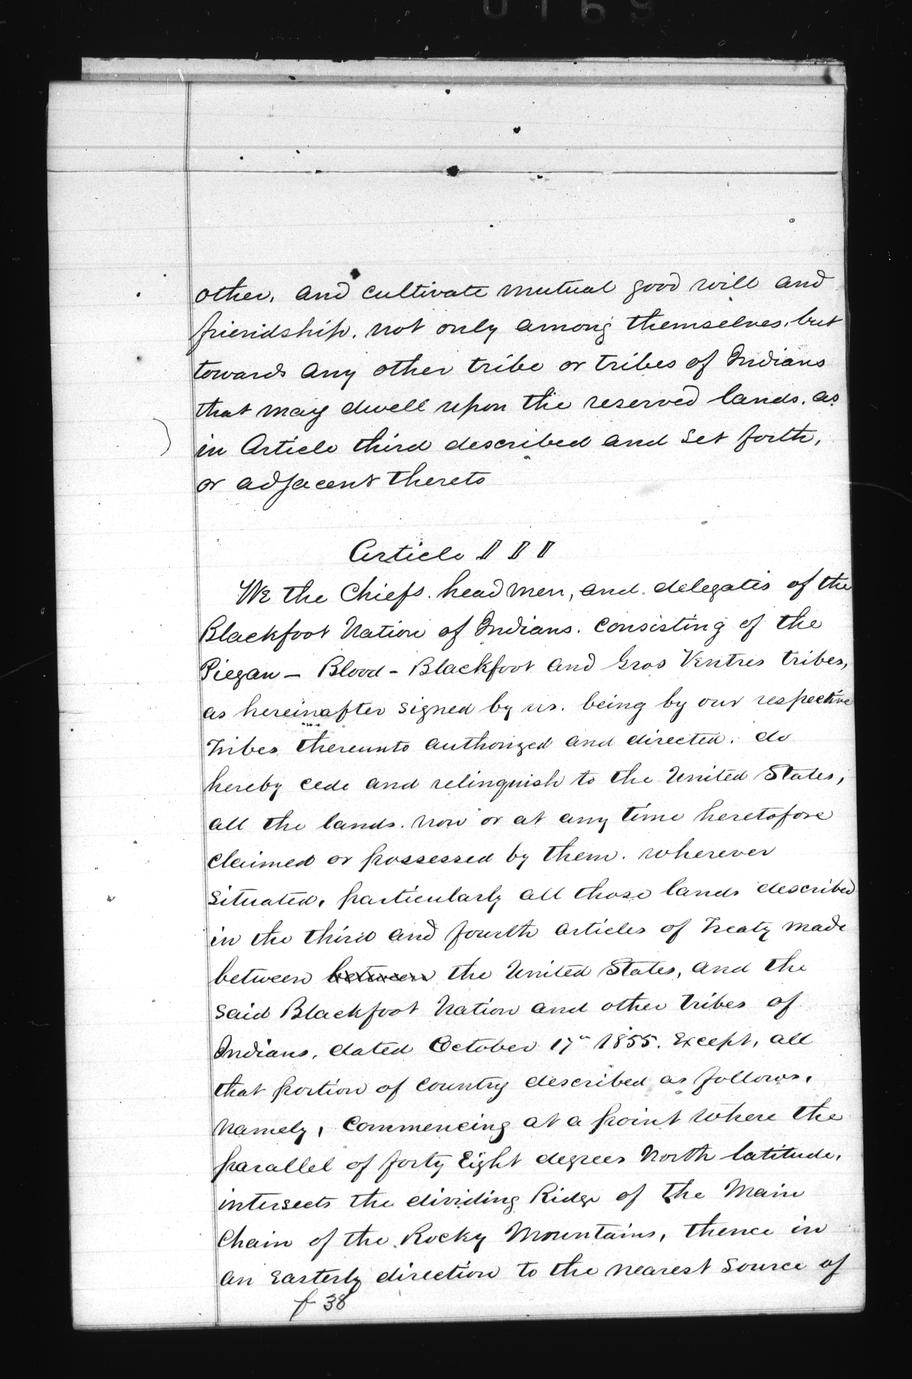 0169
other, and cultivate mutual good will and
friendship. not only among themselves, but
towards any other tribe or tribes of Indians
that may dwell upon the reserved lands. as
in Article third described and set forth,
or adjacent thereto
Article III
We the Chiefs. head men, and. delegates of the
Blackfoot Nation of Indians. Consisting of the
Piegan – Blood – Blackfoot and Gros Ventres tribes,
as hereinafter signed by us. being by our respective
Tribes thereunto authorized and directed. do
hereby cede and relinquish to the United States,
all the lands. now or at any time heretofore
claimed or possessed by them. wherever
situated, particularly all those lands described
in the third and fourth articles of Treaty made
between between the United States, and the
said Blackfoot Nation and other tribes of
Indians, dated October 17th 1855. Except, all
that portion of country described as follows,
Namely, Commencing at a point where the
parallel of forty Eight degrees North latitude,
intersects the dividing Ridge of the Main
Chain of the Rocky Mountains, thence in
an Easterly direction to the nearest source of
f 38